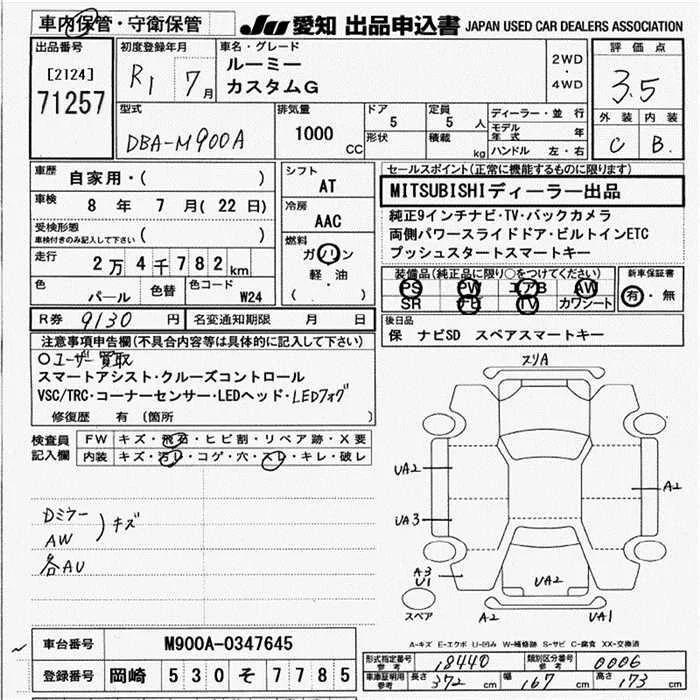 車内保管・守衛保管
JU 愛知 出品申込書 JAPAN USED CAR DEALERS ASSOCIATION
出品番号
[2124]
71257
初度登録年月
R1 7月
車名・グレード
ルーミー
カスタムG
2WD
・
4WD
評価点
3.5
外装 内装
C B.
型式
DBA-M900A
排気量
1000
CC
ドア
5
形状
定員
5 人
積載
kg
ディーラー・並行
モデル年式 年
ハンドル 左・右
車歴
自家用・( )
車検
8 年 7 月(22 日)
受検形態
車検付きのみ記入して下さい ( )
走行
2万4千782km
色
パール
色替
色コード
W24
シフト
AT
冷房
AAC
燃料
ガソリン
軽・油
( )
セールスポイント(正常に機能するものに限ります)
MITSUBISHIディーラー出品
純正9インチナビ・TV・バックカメラ
両側パワースライドドア・ビルトインETC
プッシュスタートスマートキー
装備品(純正品に限り○をつけてください)
PS PW エアB AW
SR TV カワシート
新車保証書
有・無
R券 9130 円
名変通知期限 月 日
後日品
保 ナビSD スペアスマートキー
注意事項申告欄(不具合内容等は具体的に記入して下さい)
○ユーザー買取
スマートアシスト・クルーズコントロール
VSC/TRC・コーナーセンサー・LEDヘッド・LEDフォグ
修復歴 有(箇所 )
検査員
記入欄
FW キズ・飛石・ヒビ割・リペア跡・X要
内装 キズ・汚レ・コゲ・穴・スレ・キレ・破レ
Dミラー
AW
)キズ
各AU
スリA
UA2
UA3
A2
A3
U1
UA2
スペア
A2
UA1
A-キズ E-エクボ U-凹み W-補修跡 S-サビ C-腐食 XX-交換済
車台番号 M900A-0347645
登録番号 岡崎 530 そ 7785
形式指定番号 参考 18440
類別区分番号 参考 0006
車庫証明用 参考
長さ 372 cm
幅 167 cm
高さ 173 cm